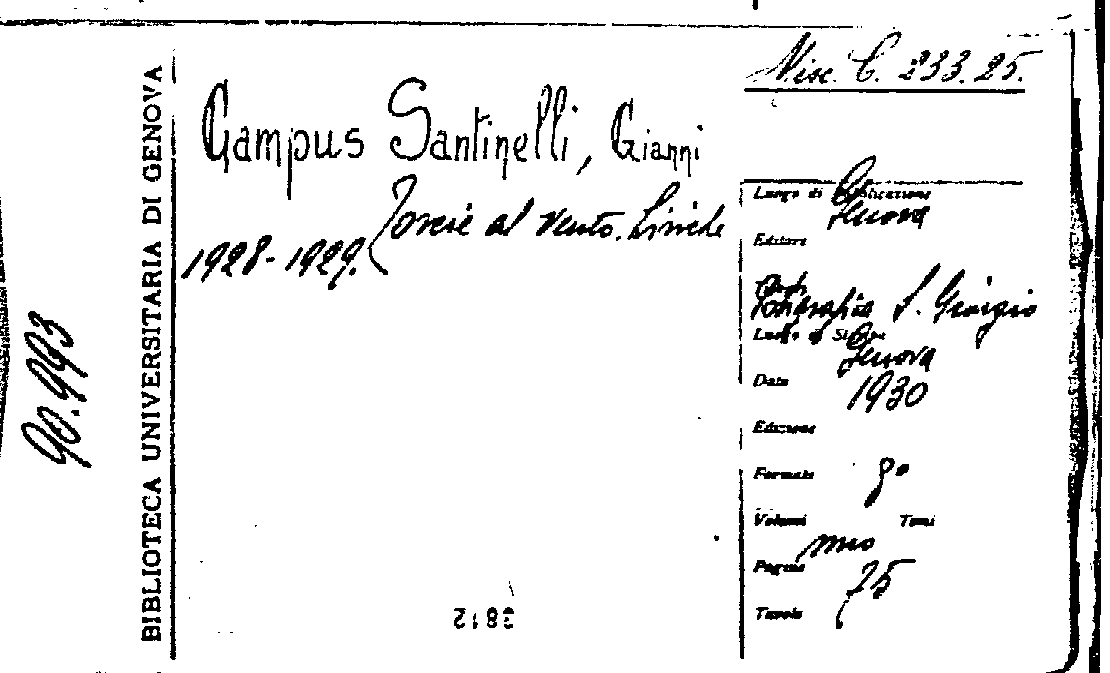 Misc. C. 233.25.
Campus Santinelli, Gianni
Poesie al vento. Liriche
1928-1929.
BIBLIOTECA UNIVERSITARIA DI GENOVA
90.993
Luogo di Pubblicazione Genova
Editore
Tipografia S. Giorgio
Luogo di Stampa Genova
Data 1930
Edizione
Formato 8°
Volumi Tomi
uno
Pagine 75
Tavole
3812